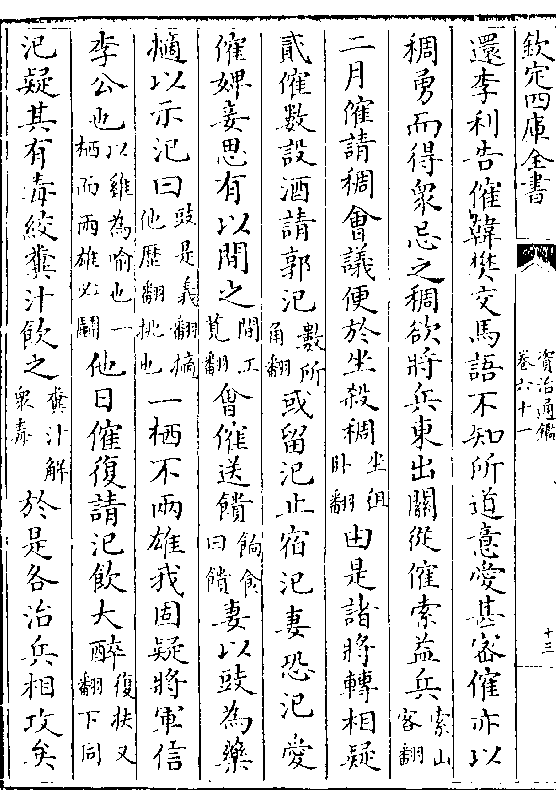 欽定四庫全書
資治通鑑
卷六十一
十三
還李利告傕韓樊交馬語不知所道意愛甚密傕亦以
稠勇而得衆忌之稠欲將兵東出關從傕索益兵索山客翻
二月傕請稠會議便於坐殺稠坐徂卧翻由是諸將轉相疑
貳傕數設酒請郭汜數所角翻或留汜止宿汜妻恐汜愛
傕婢妾思有以間之間工莧翻會傕送饋餉食曰饋妻以豉為藥
擿以示汜曰豉是義翻摘他歷翻挑也一栖不兩雄我固疑將軍信
李公也以雞為喻也一栖而兩雄必鬬他日傕復請汜飲大醉復扶又翻下同
汜疑其有毒絞糞汁飲之糞汁解衆毒於是各治兵相攻矣